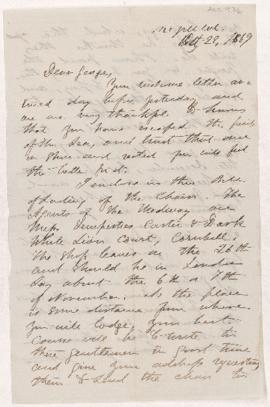 McGill Coll
Octy 28, 1869
Dear George,
Your welcome letter ar-
rived day before yesterday and
we are very thankful to learn
that you have escaped the perils
of the sea, and trust that once
on shore and rested you will feel
the better for it.
I enclose in this Bill
of Lading of the Chair. The
Agents of the Medway are
Messrs Temperlies Carter & Dark
White Lion Court, Cornhill.
The ship leaves on the
and should be in London
day about the 6th or 7th
of November. As the place
is some distance from where
you will lodge, your best
course will be to write to
these gentlemen in good time
and give your address requesting
them to send the chair